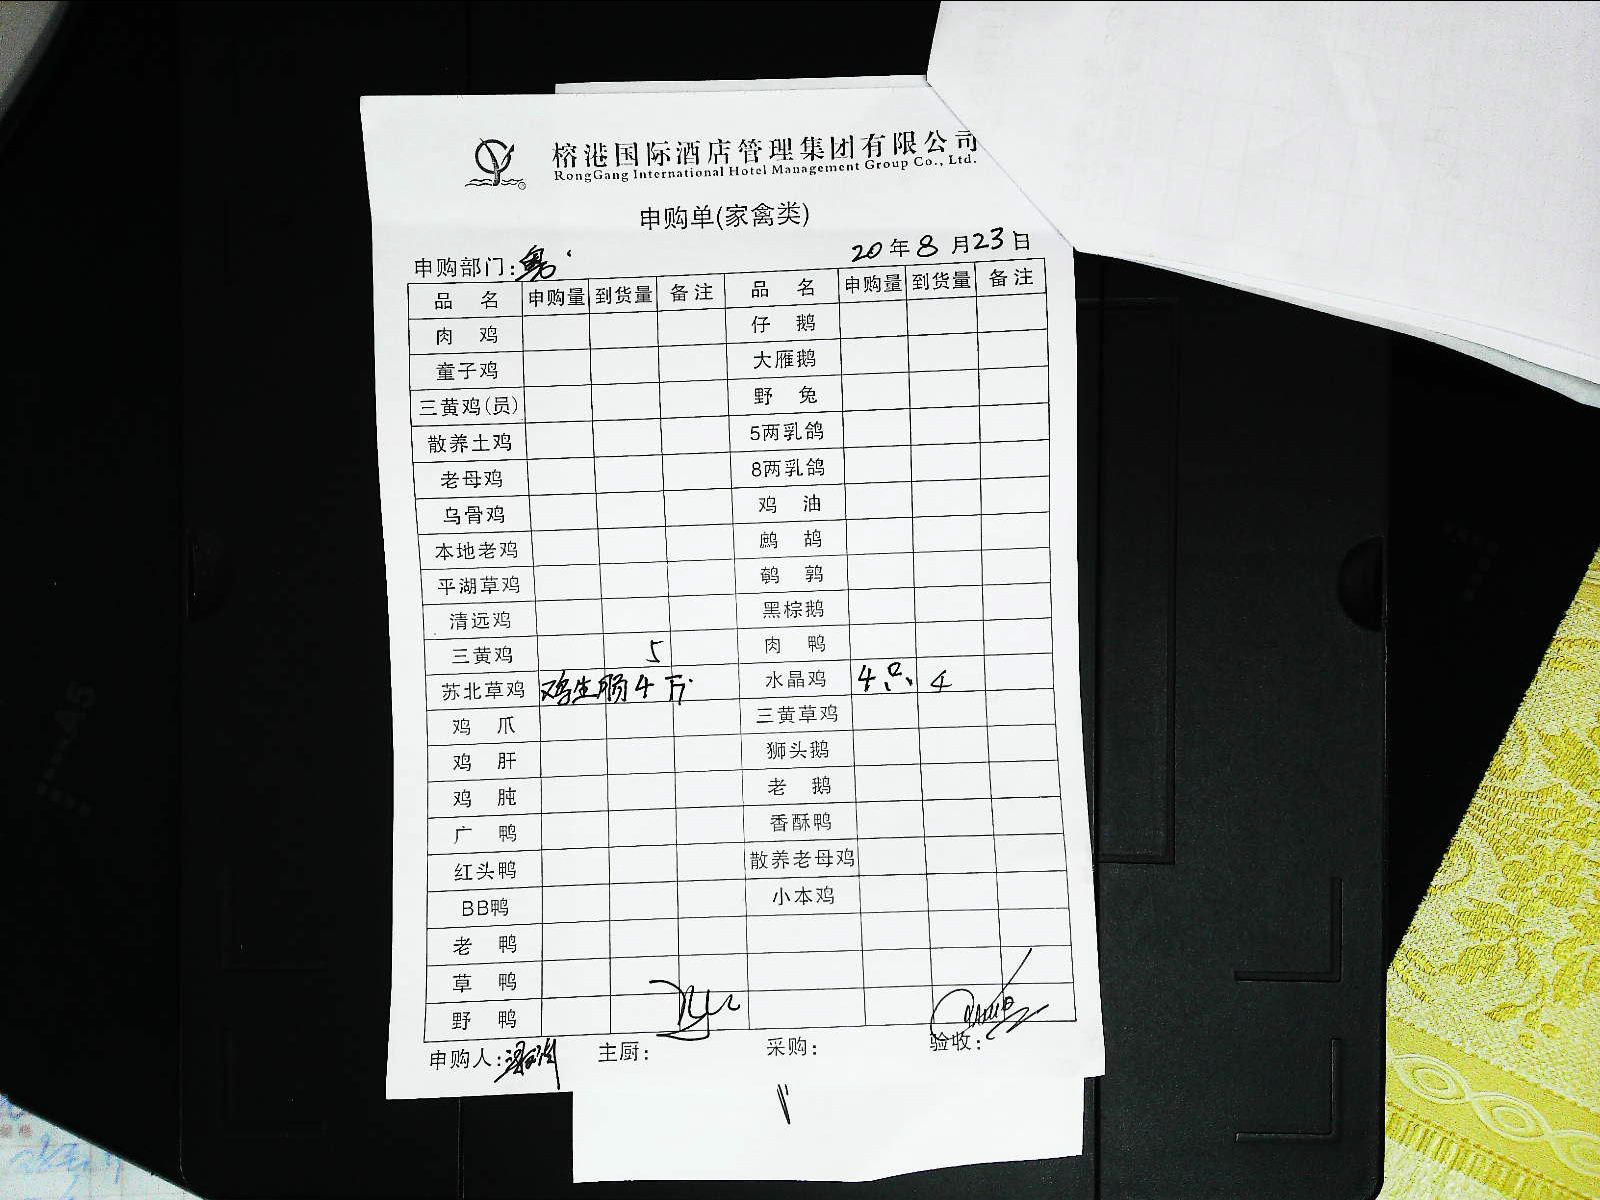 榕港国际酒店管理集团有限公司
RongGang International Hotel Management Group Co., Ltd.
申购单(家禽类)
申购部门: 20年8月23日
品 名 申购量 到货量 备注 品 名 申购量 到货量 备注
肉 鸡 仔 鹅
童子鸡 大雁鹅
三黄鸡(员) 野 兔
散养土鸡 5两乳鸽
老母鸡 8两乳鸽
乌骨鸡 鸡 油
本地老鸡 鹧 鸪
平湖草鸡 鹌 鹑
清远鸡 黑棕鹅
三黄鸡 5 肉 鸭
苏北草鸡 鸡生肠4斤 水晶鸡 4只 4
鸡 爪 三黄草鸡
鸡 肝 狮头鹅
鸡 肫 老 鹅
广 鸭 香酥鸭
红头鸭 散养老母鸡
BB鸭 小本鸡
老 鸭
草 鸭
野 鸭
申购人: 主厨: 采购: 验收: